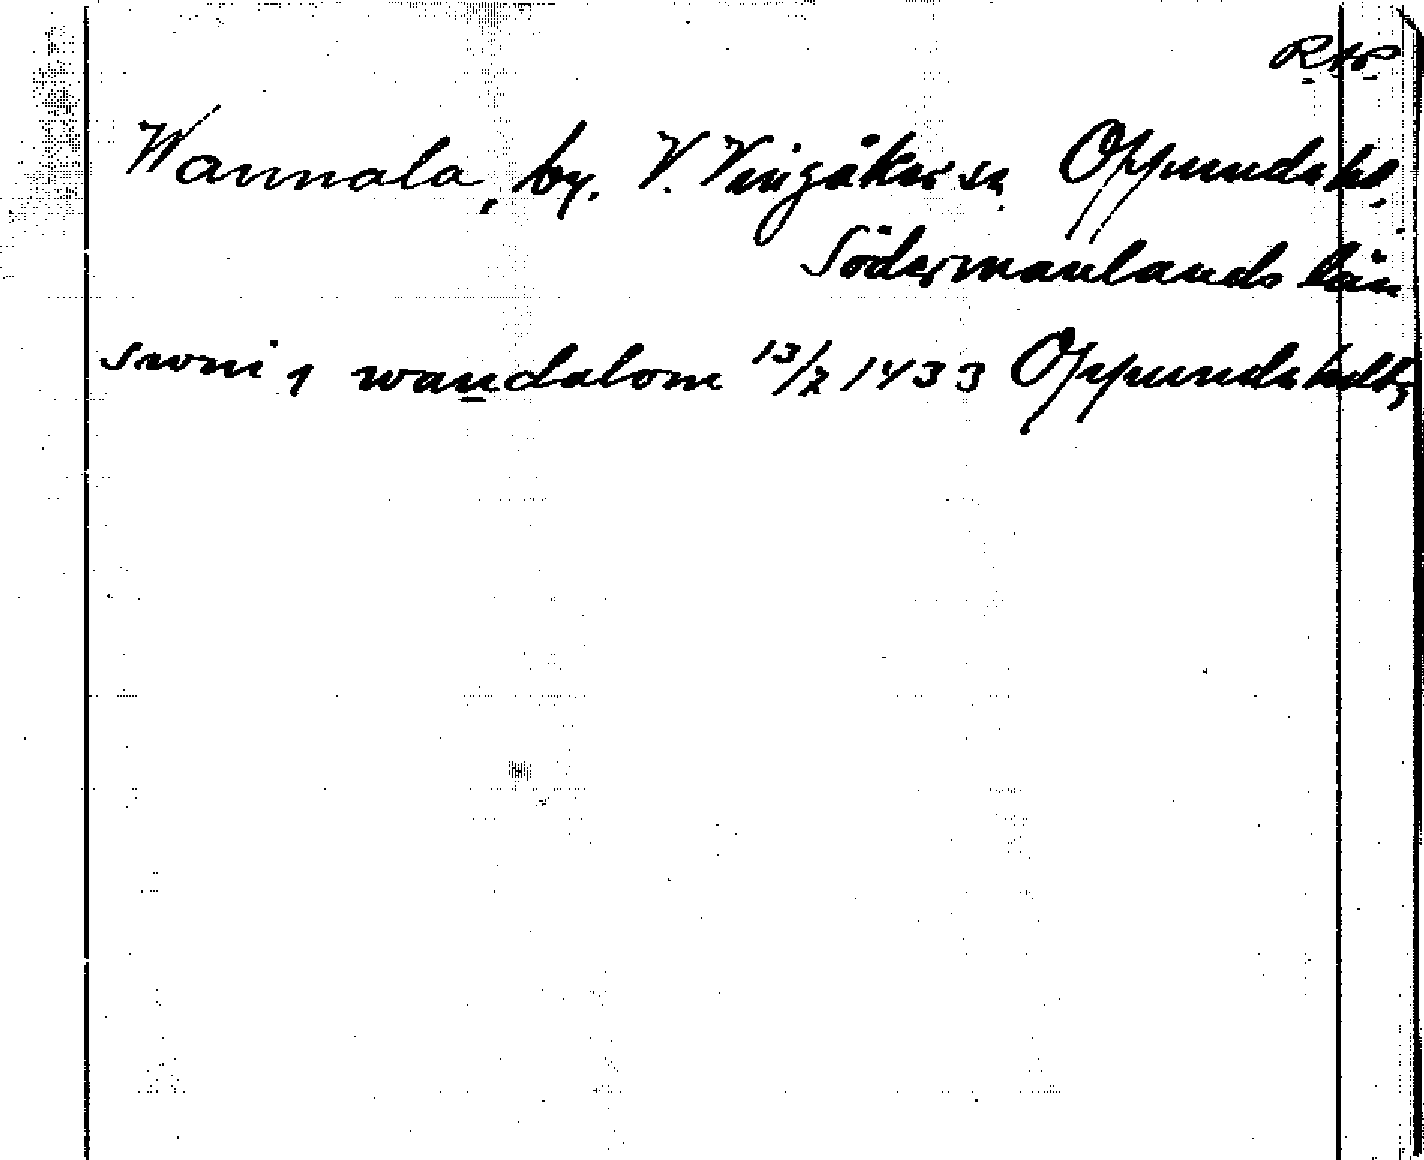 Wannala, by. V. Vingåkers sn. Oppunda hd.
Södermanlands län
swni ı wandalom 13/2 1433 Oppunda